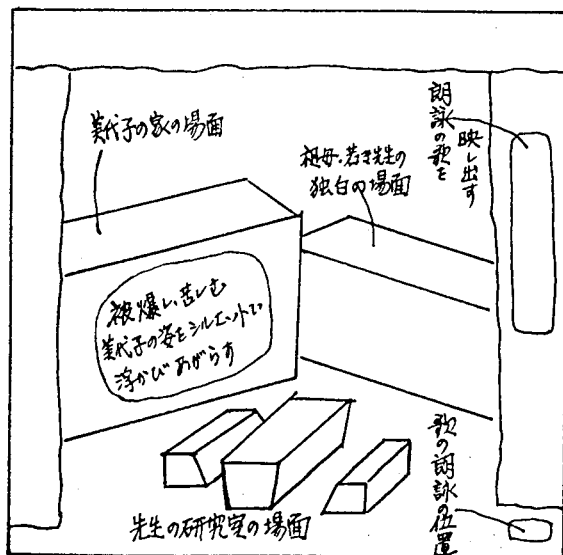 美代子の家の場面
祖母・若き先生の
独白の場面
朗詠の歌を
映し出す
被爆し、苦しむ
美代子の姿をシルエットで
浮かびあがらす
先生の研究室の場面
歌の朗詠の位置